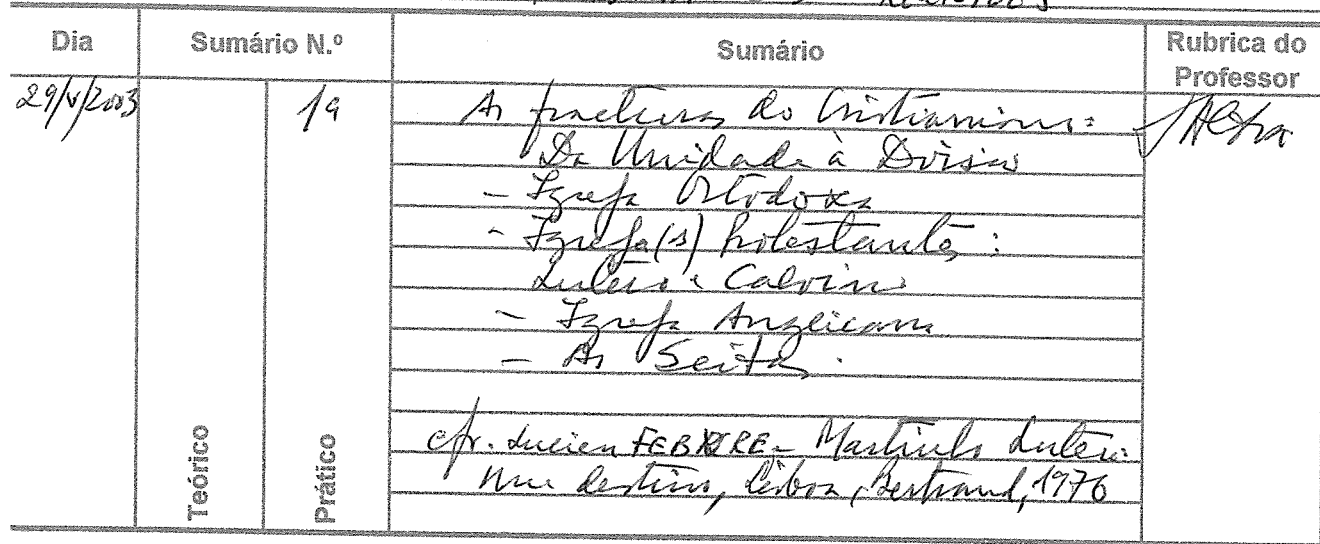 Dia Sumário N.º Sumário Rubrica do Professor
29/V/2003 1ª As fracturas do Cristianismo:
Da Unidade à Divisão
- Igreja Ortodoxa
- Igreja(s) Protestantes:
Lutero e Calvino
- Igreja Anglicana
- As Seitas.
cfr. Lucien FEBVRE - Martinho Lutero:
um destino, Lisboa, Bertrand, 1976
Teórico Prático